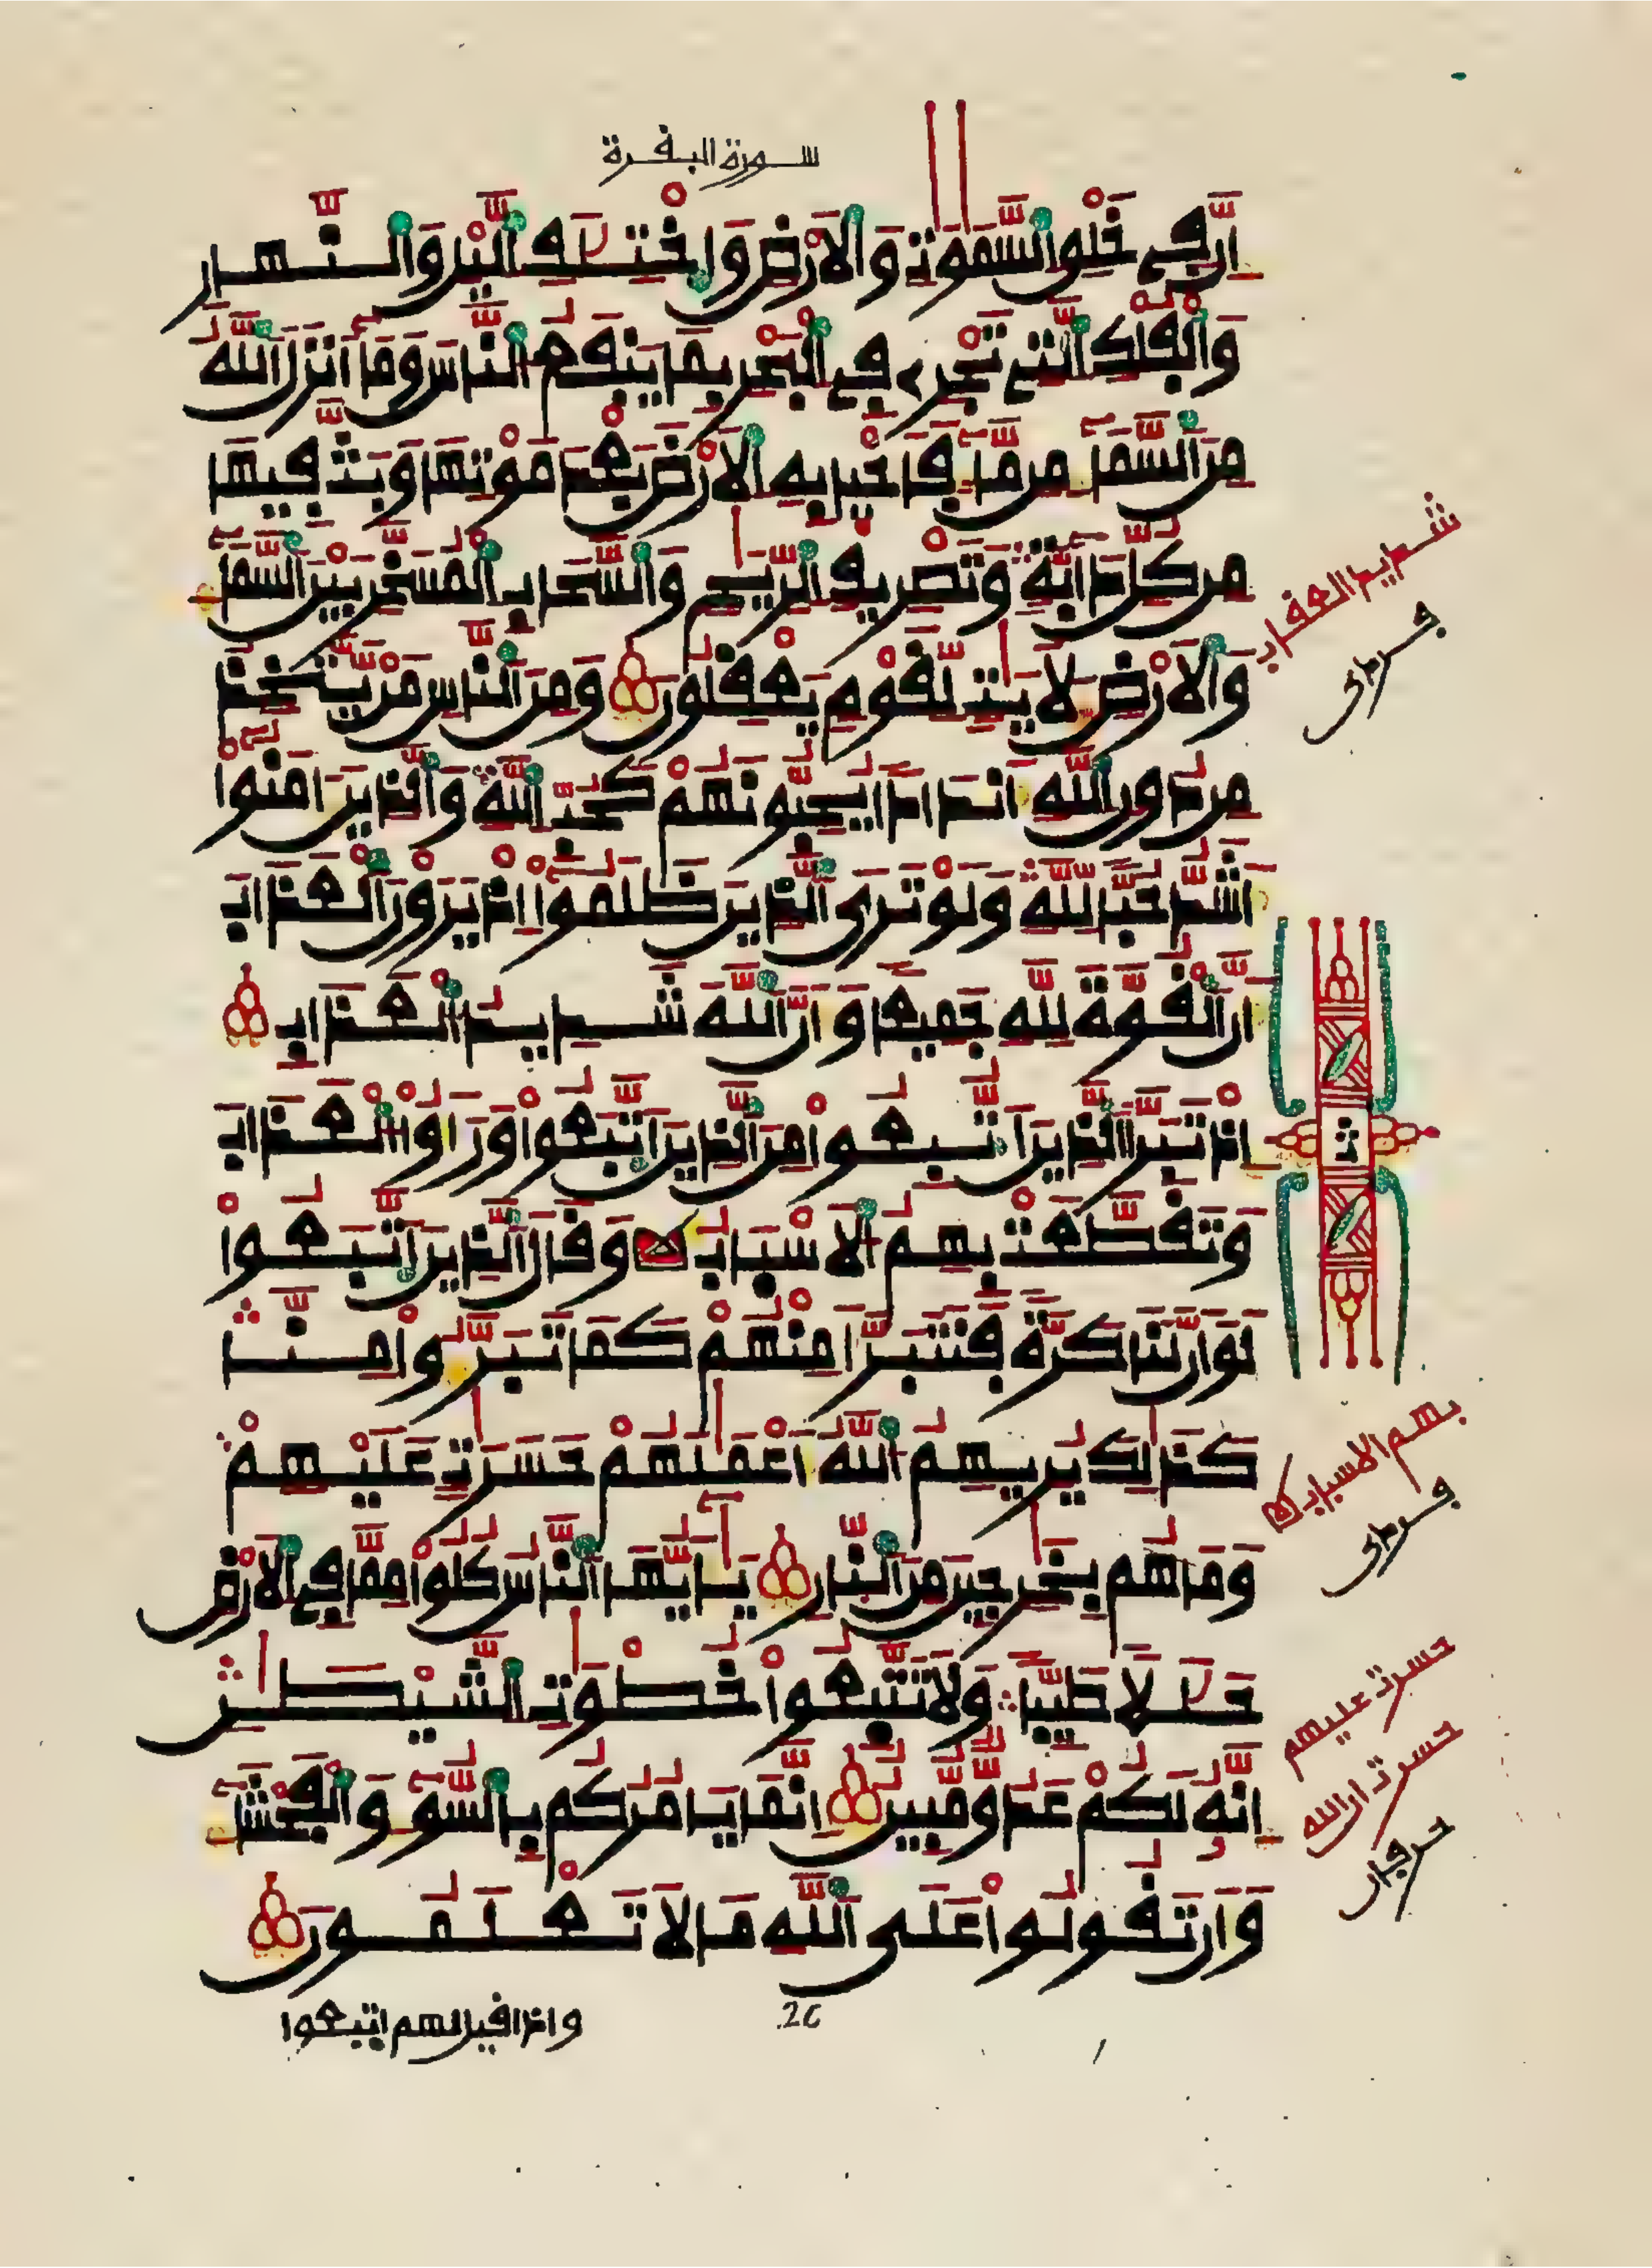 سورة البقرة
إِنَّ فِي خَلْقِ السَّمَٰوَٰتِ وَالْأَرْضِ وَاخْتِلَٰفِ الَّيْلِ وَالنَّهَارِ
وَالْفُلْكِ الَّتِي تَجْرِي فِي الْبَحْرِ بِمَا يَنفَعُ النَّاسَ وَمَا أَنزَلَ اللَّهُ
مِنَ السَّمَاءِ مِن مَّاءٍ فَأَحْيَا بِهِ الْأَرْضَ بَعْدَ مَوْتِهَا وَبَثَّ فِيهَا
مِن كُلِّ دَابَّةٍ وَتَصْرِيفِ الرِّيَٰحِ وَالسَّحَابِ الْمُسَخَّرِ بَيْنَ السَّمَاءِ
وَالْأَرْضِ لَأَيَٰتٍ لِّقَوْمٍ يَعْقِلُونَ وَمِنَ النَّاسِ مَن يَتَّخِذُ
مِن دُونِ اللَّهِ أَندَادًا يُحِبُّونَهُمْ كَحُبِّ اللَّهِ وَالَّذِينَ ءَامَنُوا
أَشَدُّ حُبًّا لِّلَّهِ وَلَوْ تَرَى الَّذِينَ ظَلَمُوا إِذْ يَرَوْنَ الْعَذَابَ
أَنَّ الْقُوَّةَ لِلَّهِ جَمِيعًا وَأَنَّ اللَّهَ شَدِيدُ الْعَذَابِ
إِذْ تَبَرَّأَ الَّذِينَ اتُّبِعُوا مِنَ الَّذِينَ اتَّبَعُوا وَرَأَوُا الْعَذَابَ
وَتَقَطَّعَتْ بِهِمُ الْأَسْبَابُ وَقَالَ الَّذِينَ اتَّبَعُوا
لَوْ أَنَّ لَنَا كَرَّةً فَنَتَبَرَّأَ مِنْهُمْ كَمَا تَبَرَّءُوا مِنَّا
كَذَٰلِكَ يُرِيهِمُ اللَّهُ أَعْمَٰلَهُمْ حَسَرَٰتٍ عَلَيْهِمْ
وَمَا هُم بِخَٰرِجِينَ مِنَ النَّارِ يَٰأَيُّهَا النَّاسُ كُلُوا مِمَّا فِي الْأَرْضِ
حَلَٰلًا طَيِّبًا وَلَا تَتَّبِعُوا خُطْوَٰتِ الشَّيْطَٰنِ
إِنَّهُ لَكُمْ عَدُوٌّ مُّبِينٌ إِنَّمَا يَأْمُرُكُم بِالسُّوءِ وَالْفَحْشَاءِ
وَأَن تَقُولُوا عَلَى اللَّهِ مَا لَا تَعْلَمُونَ
واذا قيل لهم اتبعوا
26
شديد العقاب
ث
بهم الاسباب
حسرت عليهم
حسرت ان الله